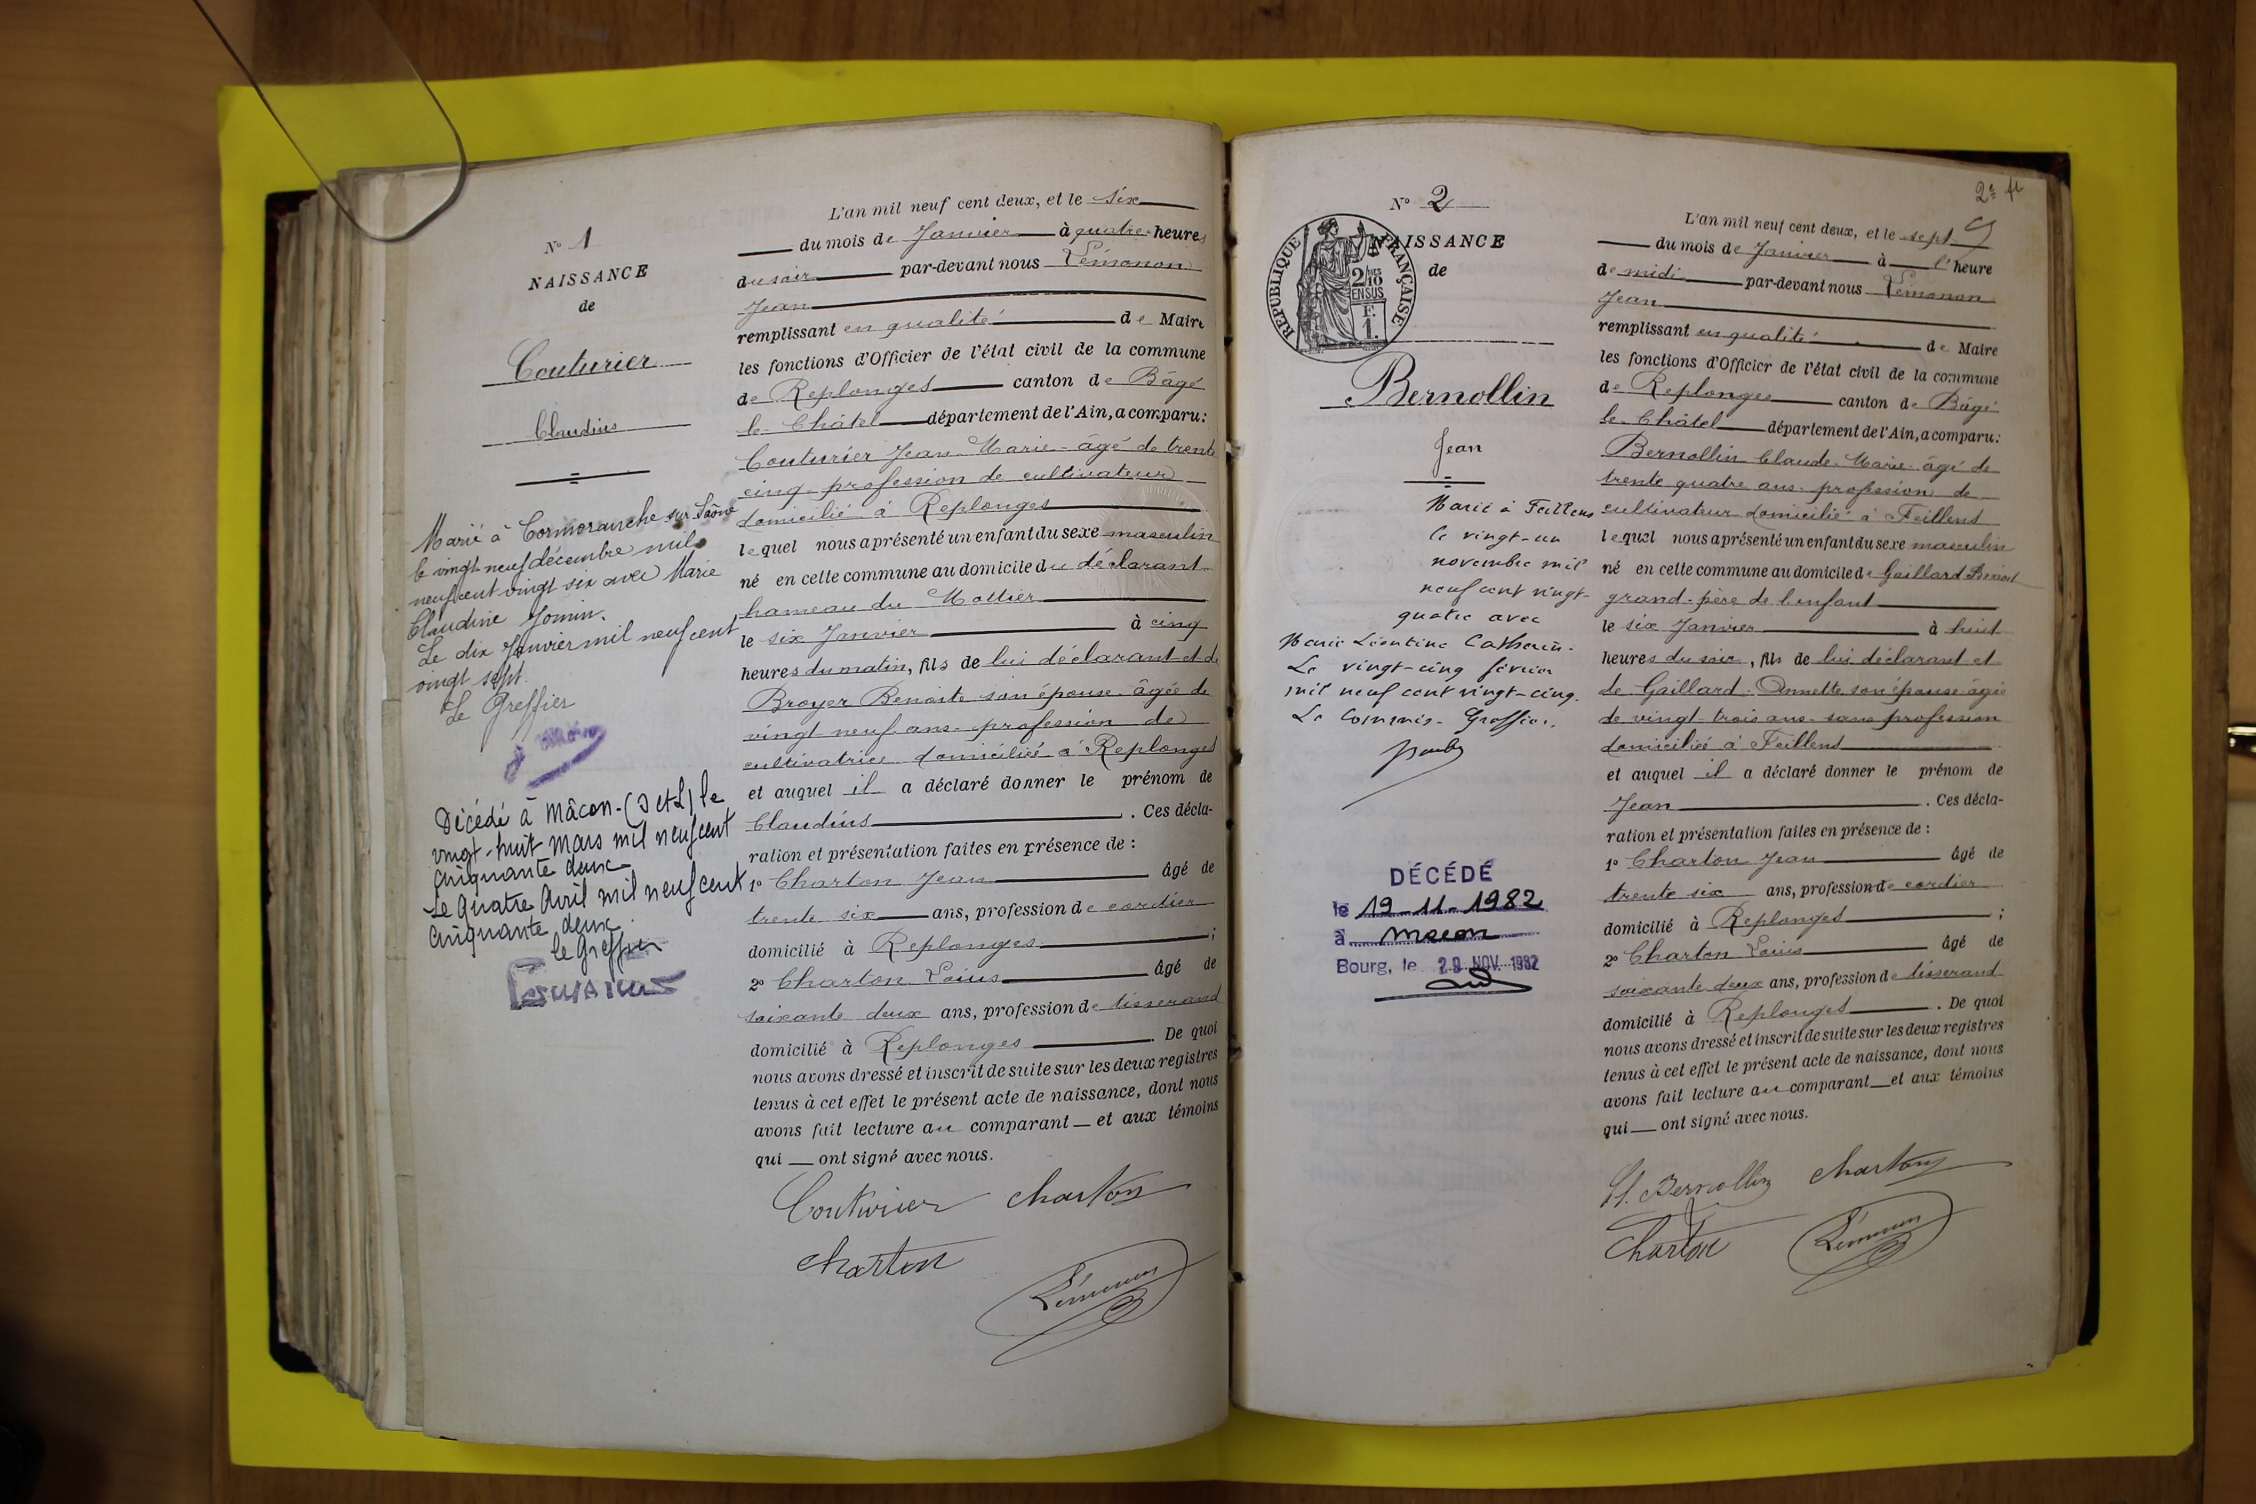 N° 1
NAISSANCE
de
Couturier
Claudius
Marié à Cormoranche sur Saône
le vingt neuf décembre mil
neuf cent vingt six avec Marie
Claudine Jomin.
Le dix Janvier mil neuf cent
vingt sept.
Le Greffier
Décédé à Mâcon (S et L) le
vingt-huit Mars mil neuf cent
cinquante deux
Le quatre Avril mil neuf cent
cinquante deux.
le Greffier
L'an mil neuf cent deux, et le six
du mois de Janvier à quatre heures
du soir par-devant nous Lémonon
Jean
remplissant en qualité de Maire
les fonctions d'Officier de l'état civil de la commune
de Replonges canton de Bâgé
le Châtel département de l'Ain, a comparu:
Couturier Jean-Marie âgé de trente
cinq profession de cultivateur
domicilié à Replonges
lequel nous a présenté un enfant du sexe masculin
né en cette commune au domicile du déclarant
hameau du Mottier
le six Janvier à cinq
heures du matin, fils de lui déclarant et de
Broyer Benoite son épouse âgée de
vingt neuf ans profession de
cultivatrice domiciliée à Replonges
et auquel il a déclaré donner le prénom de
Claudius . Ces décla-
ration et présentation faites en présence de :
1° Charton Jean âgé de
trente six ans, profession de cordier
domicilié à Replonges ;
2° Charton Loius âgé de
soixante deux ans, profession de tisserand
domicilié à Replonges . De quoi
nous avons dressé et inscrit de suite sur les deux registres
tenus à cet effet le présent acte de naissance, dont nous
avons fait lecture au comparant et aux témoins
qui ont signé avec nous.
Couturier Charton
Charton
Lémonon
2e f
N° 2
NAISSANCE
de
RÉPUBLIQUE FRANÇAISE
2/10 EN SUS
F.
1.
Bernollin
Jean
Marié à Feillens
le vingt-un
novembre mil
neuf cent vingt-
quatre avec
Marie Léontine Catherin.
Le vingt-cinq février
mil neuf cent vingt-cinq.
Le Commis-Greffier.
DÉCÉDÉ
le 19-11-1982
à Macon
Bourg, le 29 NOV. 1982
L'an mil neuf cent deux, et le sept
du mois de Janvier à l'heure
de midi par-devant nous Lémonon
Jean
remplissant en qualité de Maire
les fonctions d'Officier de l'état civil de la commune
de Replonges canton de Bâgé
le Châtel département de l'Ain, a comparu:
Bernollin Claude-Marie âgé de
trente quatre ans profession de
cultivateur domicilié à Feillens
lequel nous a présenté un enfant du sexe masculin
né en cette commune au domicile de Gaillard Benoit
grand-père de l'enfant
le six Janvier à huit
heures du soir, fils de lui déclarant et
de Gaillard Annette son épouse âgée
de vingt trois ans sans profession
domiciliée à Feillens
et auquel il a déclaré donner le prénom de
Jean . Ces décla-
ration et présentation faites en présence de :
1° Charton Jean âgé de
trente six ans, profession de cordier
domicilié à Replonges ;
2° Charton Loius âgé de
soixante deux ans, profession de tisserand
domicilié à Replonges . De quoi
nous avons dressé et inscrit de suite sur les deux registres
tenus à cet effet le présent acte de naissance, dont nous
avons fait lecture au comparant et aux témoins
qui ont signé avec nous.
Bernollin Charton
Charton Lémonon